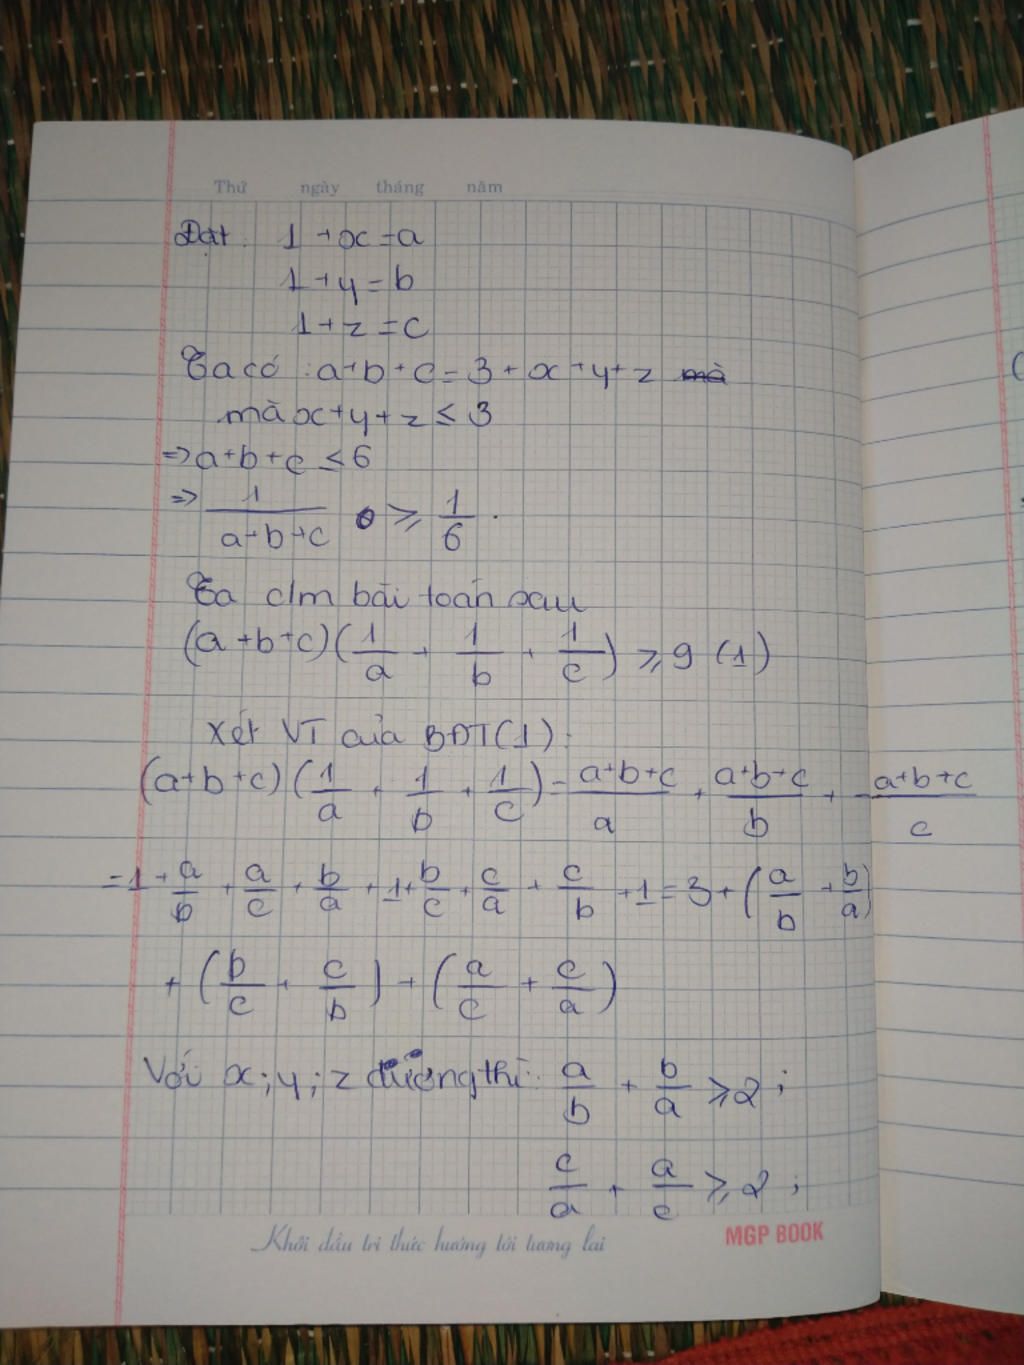 Thứ ngày tháng năm
Đặt: 1+x=a
1+y=b
1+z=c
Ta có: a+b+c=3+x+y+z mà
mà x+y+z ≤ 3
=> a+b+c ≤ 6
=> 1/(a+b+c) ≥ 1/6.
Ta c/m bài toán sau
(a+b+c)(1/a + 1/b + 1/c) ≥ 9 (1)
Xét VT của BĐT(1):
(a+b+c)(1/a + 1/b + 1/c) = (a+b+c)/a + (a+b+c)/b + (a+b+c)/c
=1+a/b + a/c + b/a + 1+b/c + c/a + c/b +1=3+(a/b + b/a)
+ (b/c + c/b) + (a/c + c/a)
Với x;y;z dương thì: a/b + b/a ≥ 2;
c/a + a/c ≥ 2;
Khởi đầu tri thức hướng tới tương lai MGP BOOK